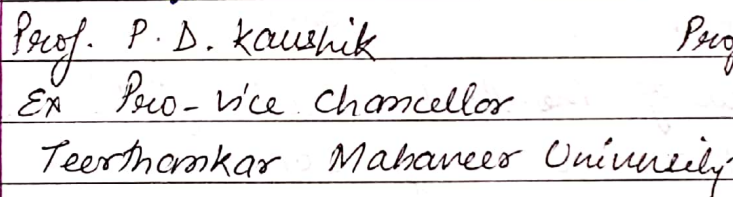 Prof. P. D. Kaushik
Ex Pro-Vice Chancellor
Teerthankar Mahaveer University